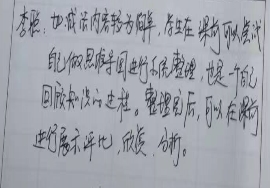 李照:加减法内容较为简单,学生在课前可以尝试
自己做思维导图进行系统整理,也是一个自
回顾知识的过程。整理完后,可以在课前
进行展示评比,欣赏,分析。